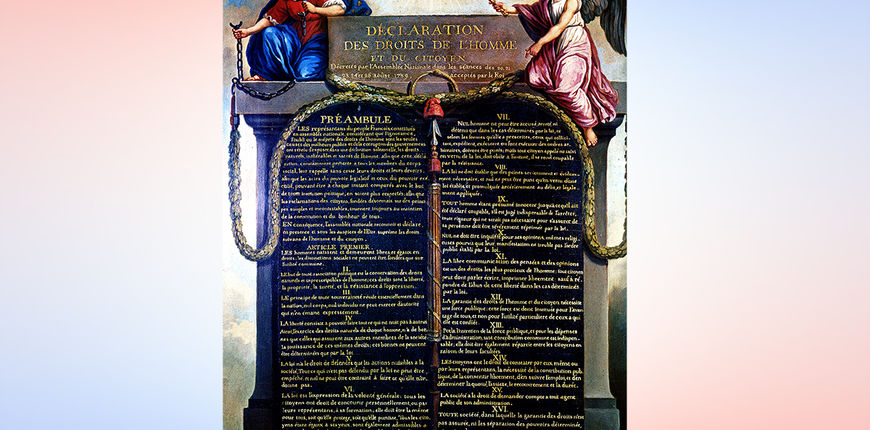 DÉCLARATION
DES DROITS DE L'HOMME
ET DU CITOYEN
Décretés par l'Assemblée Nationale dans les séances des 20, 21
23, 24 et 26 août 1789, acceptés par le Roi
PRÉAMBULE
LES représentans du peuple François, constitués
en assemblée nationale, considérant que l'ignorance,
l'oubli ou le mépris des droits de l'homme sont les seules
causes des malheurs publics et de la corruption des gouvernemens
ont résolu d'exposer dans une déclaration solemnelle, les droits
naturels, inaliénables et sacrés de l'homme, afin que cette décla-
ration, constamment présente à tous les membres du corps
social, leur rappelle sans cesse leurs droits et leurs devoirs,
afin que les actes du pouvoir législatif et ceux du pouvoir exé-
cutif, pouvant être à chaque instant comparés avec le but
de toute institution politique, en soient plus respectés, afin que
les réclamations des citoyens, fondées désormais sur des princi-
pes simples et incontestables, tournent toujours au maintien
de la constitution et du bonheur de tous.
EN conséquence, l'assemblée nationale reconnoit et déclare,
en présence et sous les auspices de l'Etre suprême les droits
suivans de l'homme et du citoyen.
ARTICLE PREMIER.
LES hommes naissent et demeurent libres et égaux en
droits. les distinctions sociales ne peuvent être fondées que sur
l'utilité commune.
II.
LE but de toute association politique est la conservation des droits
naturels et imprescriptibles de l'homme; ces droits sont la liberté,
la propriété, la sureté, et la résistance à l'oppression.
III.
LE principe de toute souveraineté réside essentiellement dans
la nation, nul corps, nul individu ne peut exercer d'autorité
qui n'en émane expressément.
IV.
LA liberté consiste à pouvoir faire tout ce qui ne nuit pas à autrui
Ainsi, l'exercice des droits naturels de chaque homme, n'a de bor-
nes que celles qui assurent aux autres membres de la société
la jouissance de ces mêmes droits; ces bornes ne peuvent
être déterminées que par la loi
V.
LA loi n'a le droit de défendre que les actions nuisibles à la
société. Tout ce qui n'est pas défendu par la loi ne peut être
empêché, et nul ne peut être contraint à faire ce qu'elle n'or-
donne pas.
VI.
LA loi est l'expression de la volonté générale; tous les
citoyens ont droit de concourir personnellement, ou par
leurs représentans, à sa formation; elle doit être la même
pour tous, soit qu'elle protege, soit qu'elle punisse. Tous les cito-
yens étant égaux à ses yeux, sont également admissibles à
VII.
NUL homme ne peut être accusé, arreté ni
détenu que dans les cas déterminés par la loi, et
selon les formes qu'elle a prescrites, ceux qui sollici-
tent, expédient, exécutent ou font exécuter des ordres ar-
bitraires, doivent être punis; mais tout citoyen appelé ou saisi
en vertu de la loi, doit obéir à l'instant, il se rend coupable
par la résistance.
VIII.
LA loi ne doit établir que des peines strictement et évidem-
ment nécessaire, et nul ne peut être puni qu'en vertu d'une
loi établie et promulguée antérieurement au délit, et légale-
ment appliquée.
IX.
TOUT homme étant présumé innocent jusqu'à ce qu'il ait
été déclaré coupable, s'il est jugé indispensable de l'arrêter,
toute rigueur qui ne serait pas nécessaire pour s'assurer de
sa personne doit être sévèrement réprimée par la loi.
X.
NUL ne doit être inquiété pour ses opinions, mêmes religi-
euses pourvu que leur manifestation ne trouble pas l'ordre
public établi par la loi.
XI.
LA libre communication des pensées et des opinions
est un des droits les plus precieux de l'homme: tout citoyen
peut donc parler écrire, imprimer librement: sauf à ré-
pondre de l'abus de cette liberté dans les cas déterminés
par la loi.
XII.
LA garantie des droits de l'homme et du citoyen nécessite
une force publique: cette force est donc instituée pour l'avan-
tage de tous, et non pour l'utilité particuliere de ceux a qui
elle est confiée.
XIII.
POUR l'entretien de la force publique, et pour les dépenses
d'administration, une contribution commune est indispen-
sable; elle doit être également répartie entre les citoyens en
raison de leurs facultées
XIV.
LES citoyens ont le droit de constater par eux même ou
par leurs représentans, la nécessité de la contribution pub-
lique, de la consentir librement, d'en suivre l'emploi, et d'en
déterminer la quotité, l'assiette, le recouvrement et la durée.
XV.
LA société a le droit de demander compte a tout agent
public de son administration.
XVI.
TOUTE société, dans laquelle la garantie des droits n'est
pas assurée, ni les séparation des pouvoirs déterminée,